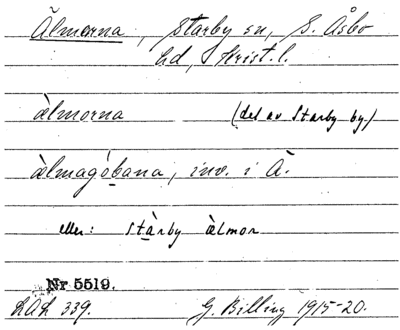 Älmorna, Starby sn, S. Åsbo
hd, Krist. l.
àlmorna (del av Starby by.)
àlmagóbana, inv. i Ä.
eller: Stàrby àlmor
Nr 5519.
LAL 339. G. Billing 1915-20.